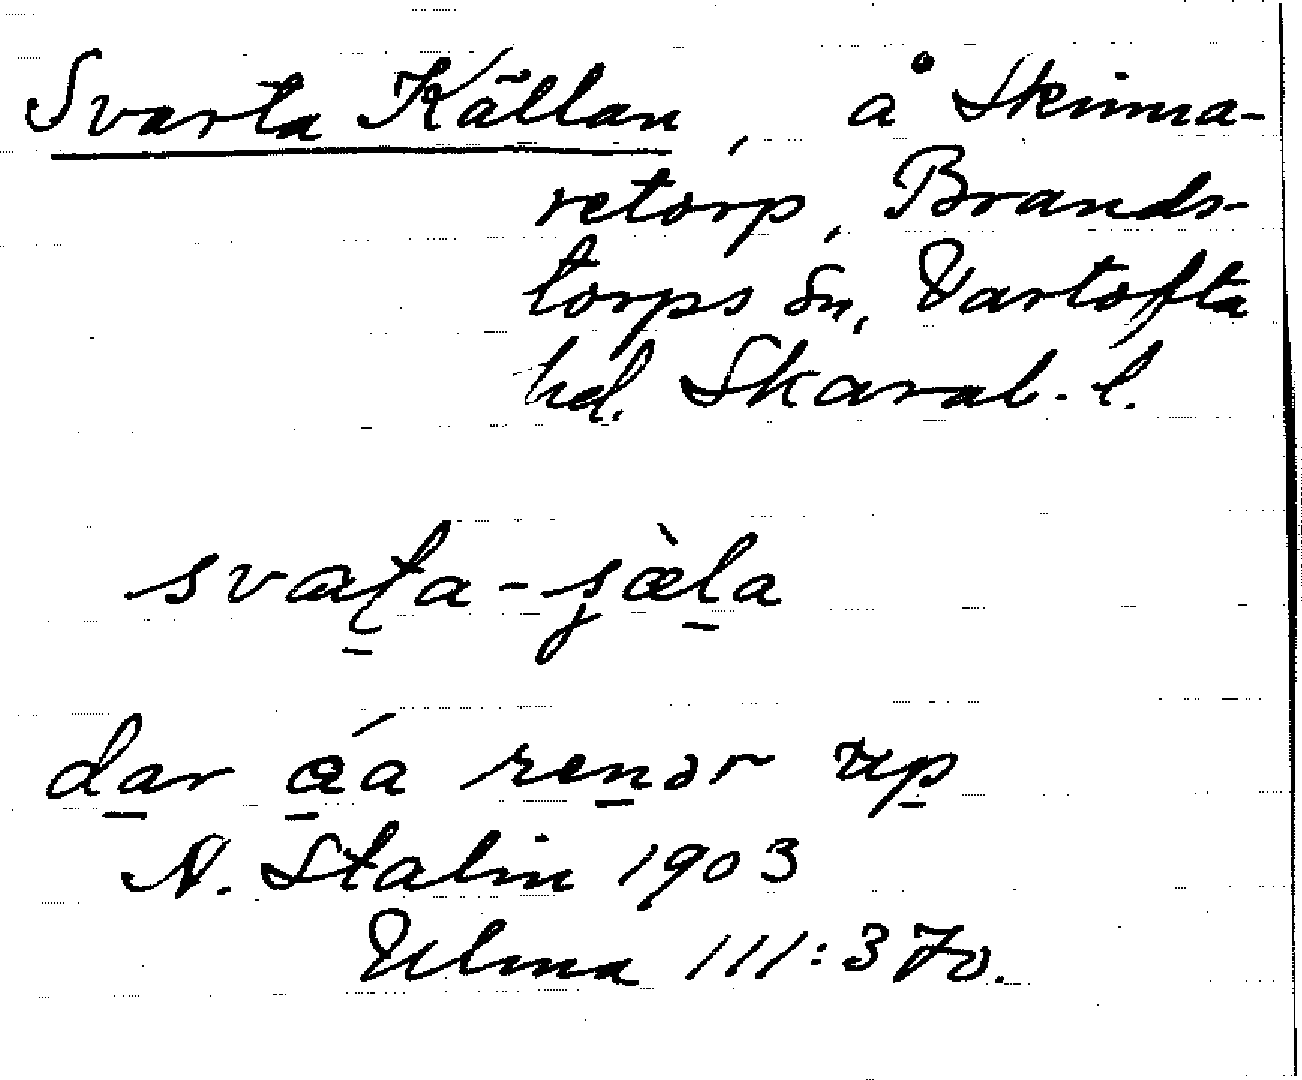 Svarta Källan, å Skinna-
retorp, Brands-
torps sn, Vartofta
hd. Skarab. l.
svaṯa-ʂæ̀ḻa
da̱r ǽ̱a ren̠ər up̱
N. Stalin 1903
Ulma 111:370.